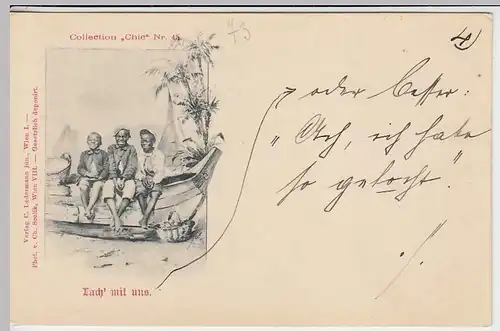 Collection „Chic“ Nr. 45
4)
Verlag C. Ledermann jun., Wien I. —
Phot. v. Ch. Scolik, Wien VIII. — Gesetzlich deponirt.
oder besser:
„Ach, ich habe
so gelacht.“
Lach' mit uns.